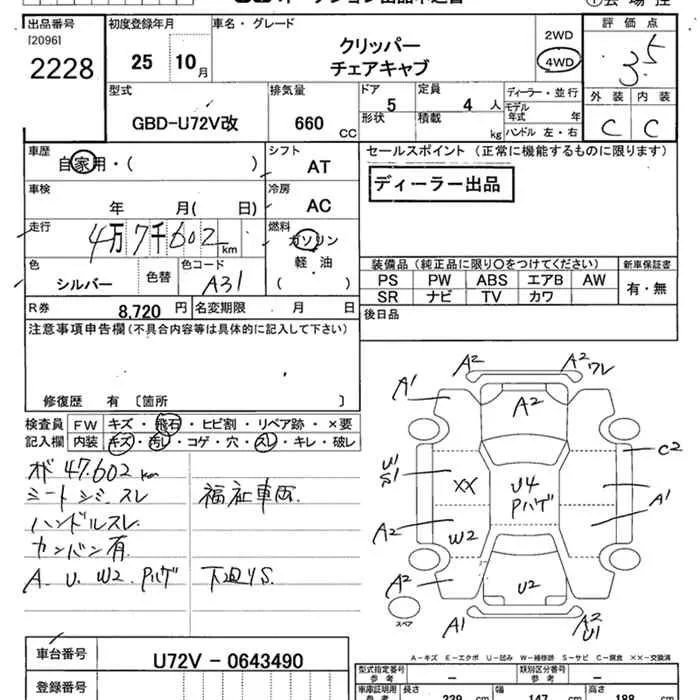 出品番号 初度登録年月 車名・グレード 評価点
[2096]
2228 25 10月 クリッパー チェアキャブ 2WD 4WD 3.5
外装 内装
C C
型式 排気量 ドア 定員 ディーラー・並行
GBD-U72V改 660 CC 5 4人 モデル年式 年
形状 積載 kg ハンドル 左・右
車歴 シフト セールスポイント (正常に機能するものに限ります)
自家用・( ) AT
ディーラー出品
車検 冷房
年 月( 日) AC
走行 燃料
4万7千602km ガソリン
軽油
( )
色 色替 色コード
シルバー A31
装備品 (純正品に限り○をつけてください) 新車保証書
PS PW ABS エアB AW 有・無
SR ナビ TV カワ
R券 8,720円 名変期限 月 日 後日品
注意事項申告欄(不具合内容等は具体的に記入して下さい)
修復歴 有 〔箇所 〕
検査員 FW キズ・飛石・ヒビ割・リペア跡・×要
記入欄 内装 キズ・汚レ・コゲ・穴・スレ・キレ・破レ
47.602km
シートシミ.スレ 福祉車両.
ハンドルスレ.
カンバン有
A. U. W2. Pハゲ 下廻りS.
A2 A2 ワレ
A1 A2
U1 S1 C2
XX U4 Pハゲ A1
A2 W2
A2 U2
スペア A1 A2 U1
A-キズ E-エクボ U-凹み W-補修跡 S-サビ C-腐食 ××-交換済
車台番号 U72V-0643490
型式指定番号 参考 - 類別区分番号 参考 -
登録番号 車庫証明用 参考 長さ 339 cm 幅 147 cm 高さ 188 cm